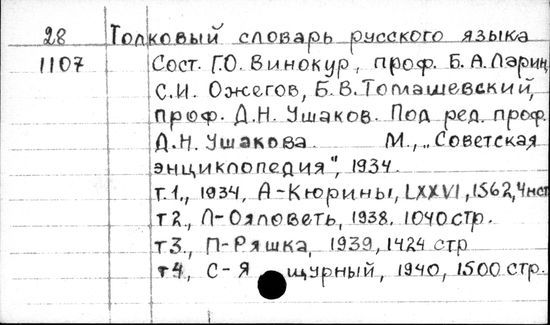 28 Толковый словарь русского языка
1107 Сост. Г.О. Винокур, проф. Б.А. Ларин,
С.И. Ожегов, Б.В. Томашевский,
проф. Д.Н. Ушаков. Под ред. проф.
Д.Н. Ушакова. М., „Советская
энциклопедия", 1934.
т.1., 1934, А-Кюрины, LXXVI, 1562, 4 нст
т2., Л-Ояловеть, 1938. 1040 стр.
т3., П-Ряшка, 1939, 1424 стр
т4, С-Я щурный, 1940, 1500 стр.